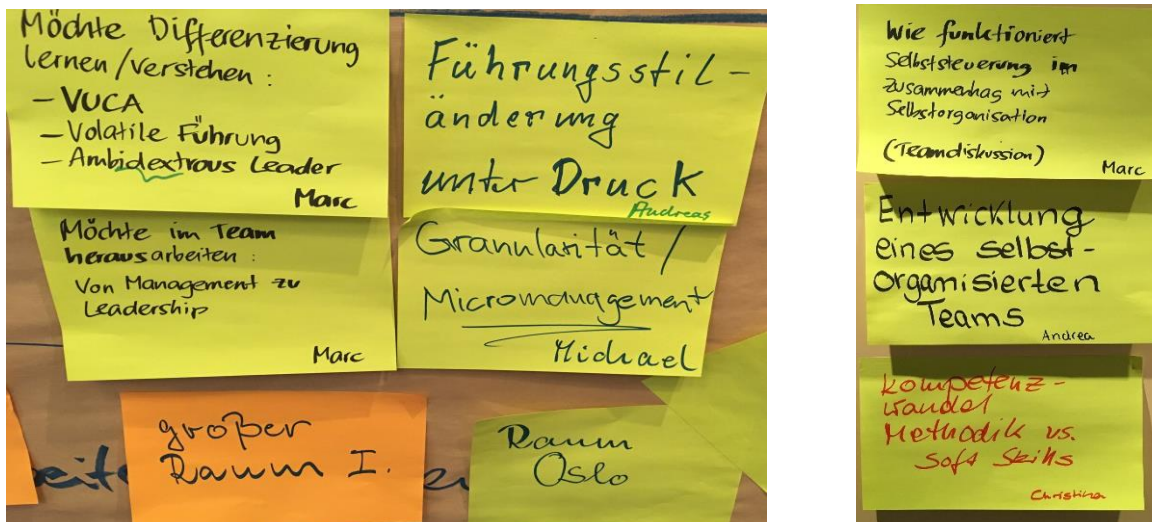 Möchte Differenzierung
lernen/verstehen:
– VUCA
– Volatile Führung
– Ambidextrous Leader
Marc
Führungsstil-
änderung
unter Druck
Andreas
Möchte im Team
herausarbeiten:
Von Management zu
Leadership
Marc
Granularität/
Micromanagement
Michael
großer
Raum I.
Raum
Oslo
Wie funktioniert
Selbststeuerung im
Zusammenhag mit
Selbstorganisation
(Teamdiskussion)
Marc
Entwicklung
eines selbst-
organisierten
Teams
Andrea
Kompetenz-
wandel
Methodik vs.
Soft Skills
Christina